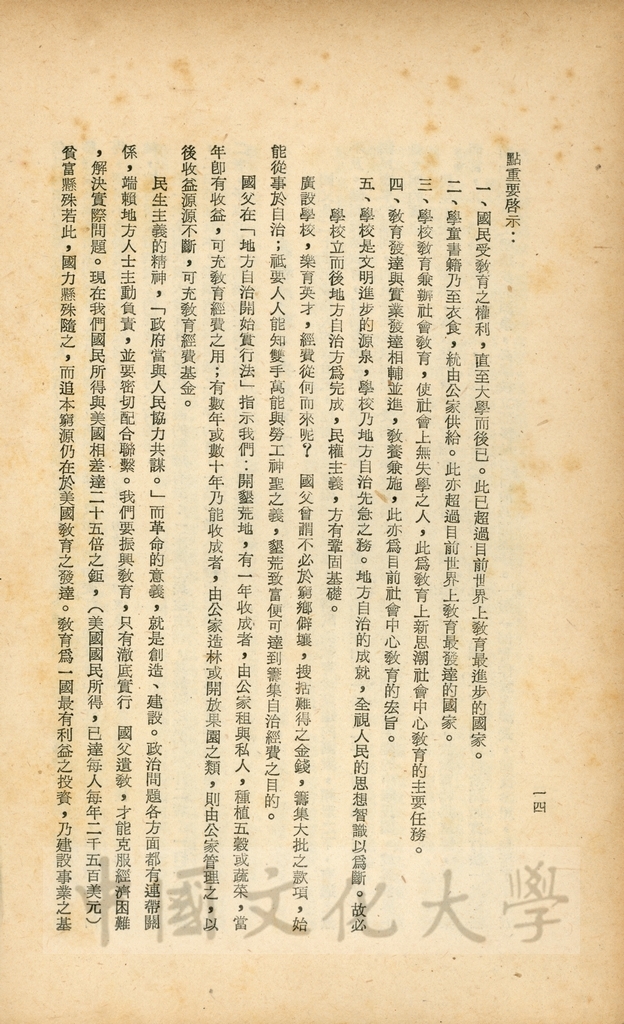 點重要啓示：
一、國民受敎育之權利，直至大學而後已。此已超過目前世界上敎育最進步的國家。
二、學童書籍乃至衣食，統由公家供給。此亦超過目前世界上敎育最發達的國家。
三、學校敎育兼辦社會敎育，使社會上無失學之人，此爲敎育上新思潮社會中心敎育的主要任務。
四、敎育發達與實業發達相輔並進，敎養兼施，此亦爲目前社會中心敎育的宏旨。
五、學校是文明進步的源泉，學校乃地方自治先急之務。地方自治的成就，全視人民的思想智識以爲斷。故必
學校立而後地方自治方爲完成，民權主義，方有鞏固基礎。
廣設學校，樂育英才，經費從何而來呢？　國父曾謂不必於窮鄉僻壤，搜括難得之金錢，籌集大批之款項，始
能從事於自治；祇要人人能知雙手萬能與勞工神聖之義，墾荒致富便可達到籌集自治經費之目的。
國父在「地方自治開始實行法」指示我們：開墾荒地，有一年收成者，由公家租與私人，種植五穀或蔬菜，當
年卽有收益，可充敎育經費之用；有數年或數十年乃能收成者，由公家造林或開放果園之類，則由公家管理之，以
後收益源源不斷，可充敎育經費基金。
民生主義的精神，「政府當與人民協力共謀。」而革命的意義，就是創造、建設。政治問題各方面都有連帶關
係，端賴地方人士主動負責，並要密切配合聯繫。我們要振興敎育，只有澈底實行　國父遺敎，才能克服經濟困難
，解決實際問題。現在我們國民所得與美國相差達二十五倍之鉅，（美國國民所得，已達每人每年二千五百美元）
貧富懸殊若此，國力懸殊隨之，而追本窮源仍在於美國敎育之發達。敎育爲一國最有利益之投資，乃建設事業之基
一四
中國文化大學